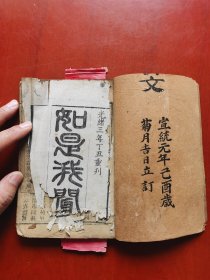 光緒三年丁丑重刊
如是我聞
文
宣統元年己酉歲
菊月吉日立訂